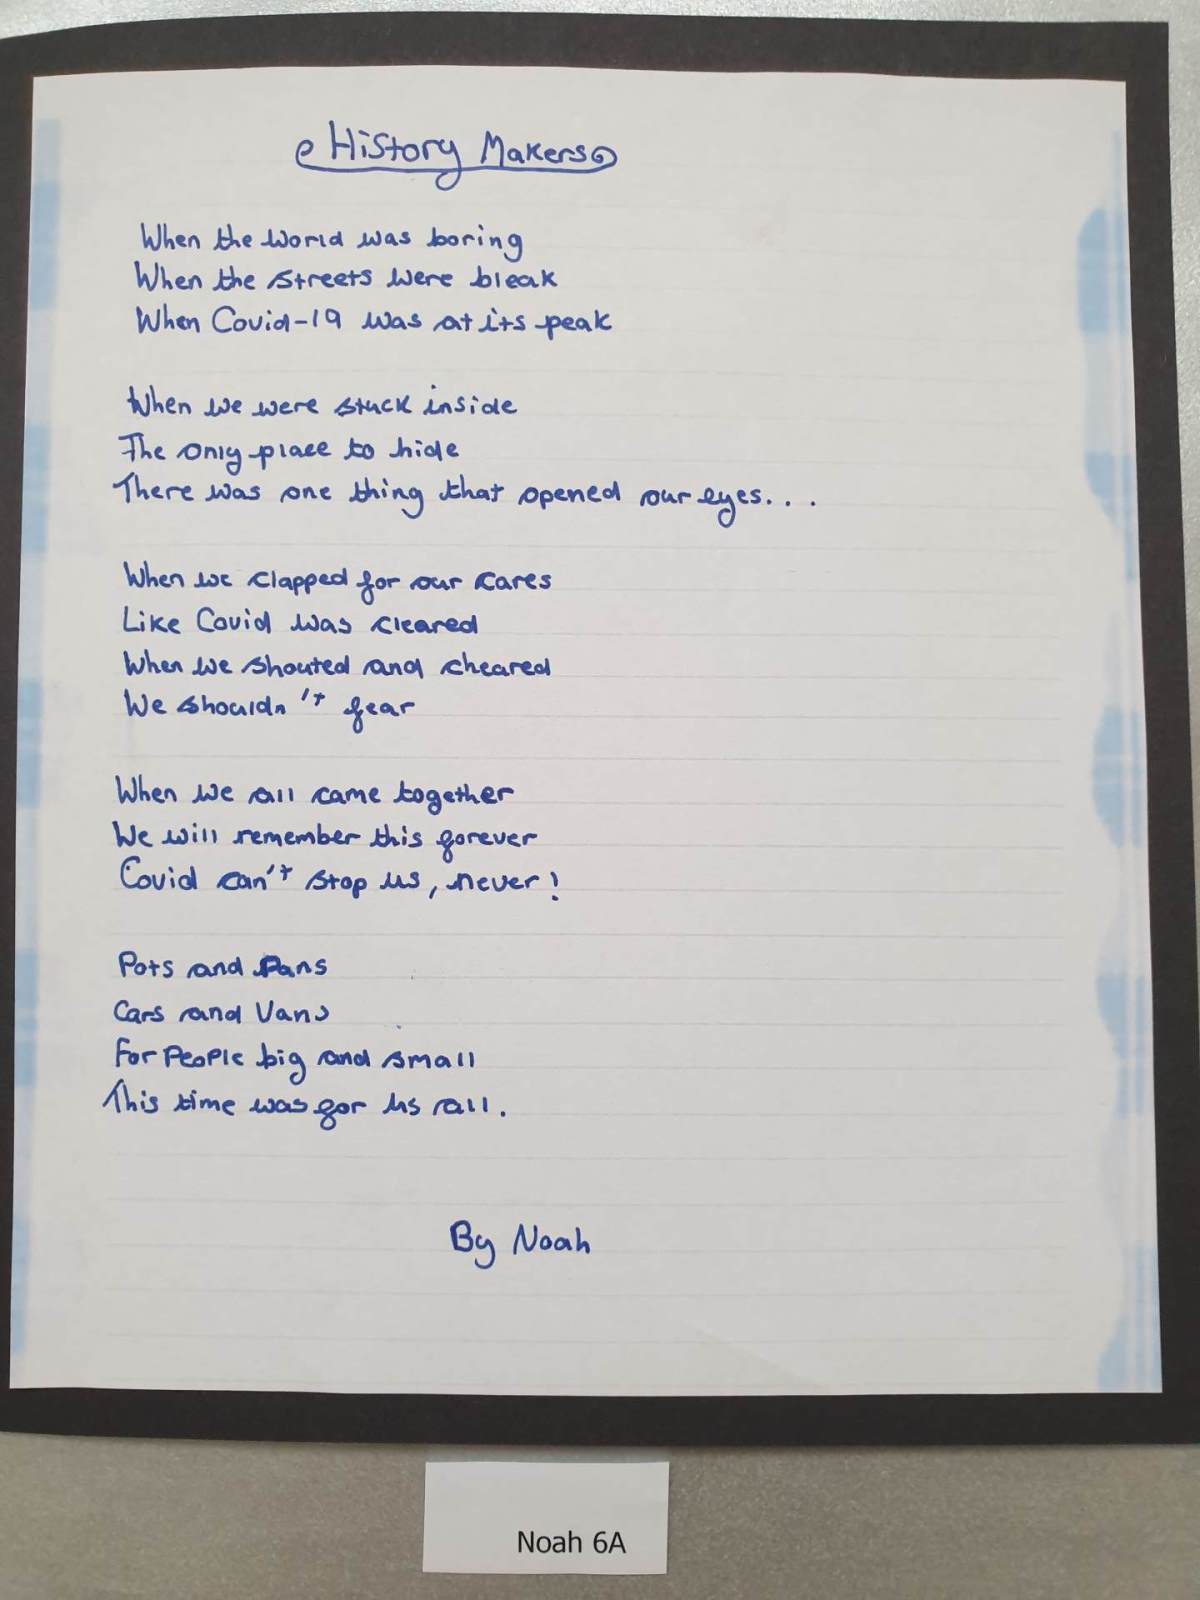 History Makers
When the World was boring
When the streets were bleak
When Covid-19 was at its peak
When we were stuck inside
The only place to hide
There was one thing that opened our eyes...
When we clapped for our cares
Like Covid was cleared
When we shouted and cheared
We shouldn't fear
When we all came together
We will remember this forever
Covid can't stop us, never!
Pots and Pans
Cars and Vans
For People big and small
This time was for us all.
By Noah
Noah 6A